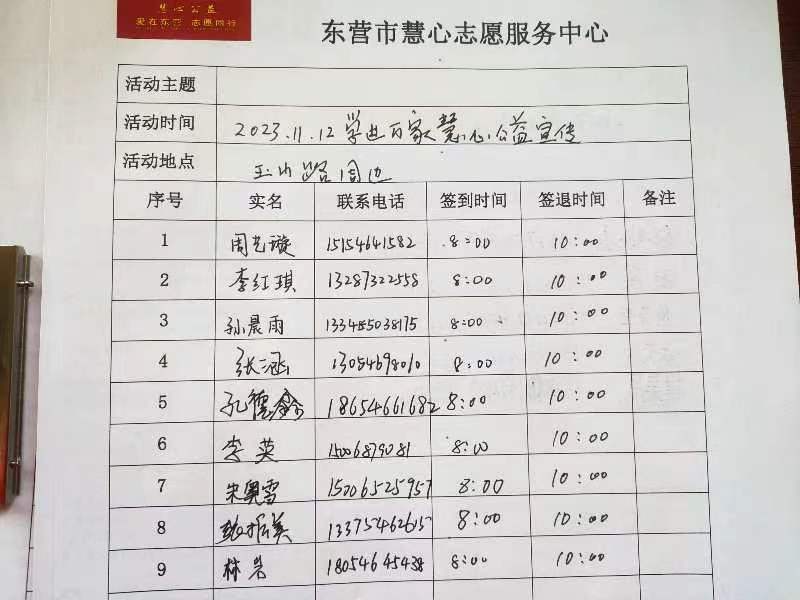 慧心公益
爱在东营 志愿同行
东营市慧心志愿服务中心
活动主题
活动时间 2023.11.12 学进百家慧心公益宣传
活动地点 玉山路周边
序号 实名 联系电话 签到时间 签退时间 备注
1 周艺璇 15154641582 8:00 10:00
2 李红琪 13287322558 8:00 10:00
3 孙晨雨 8:00 10:00
4 张涵 13054698010 8:00 10:00
5 孔德鑫 18654661682 8:00 10:00
6 李英 15006879081 8:00 10:00
7 宋奥雪 15006525957 8:00 10:00
8 振美 8:00 10:00
9 林岩 18054645438 8:00 10:00